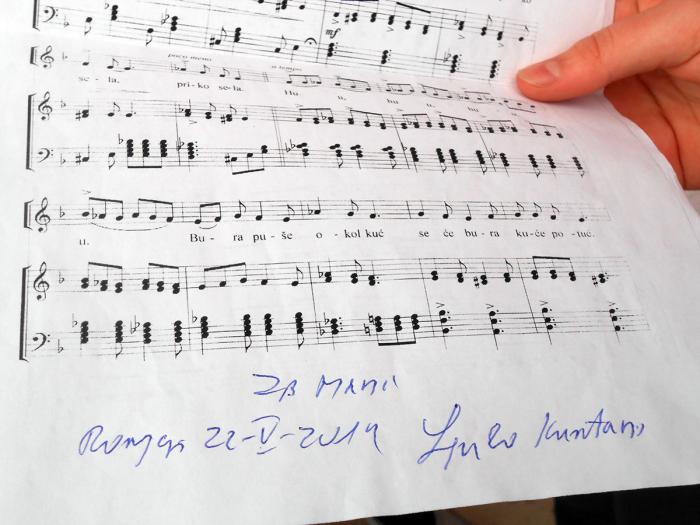 mf
poco meno a tempo
se - la. pri - ko se - la. Hu u, hu u, hu
u. Bu - ra pu - še o - kol kuć se će bu - ra ku - će po - tuć.
22-V-2019